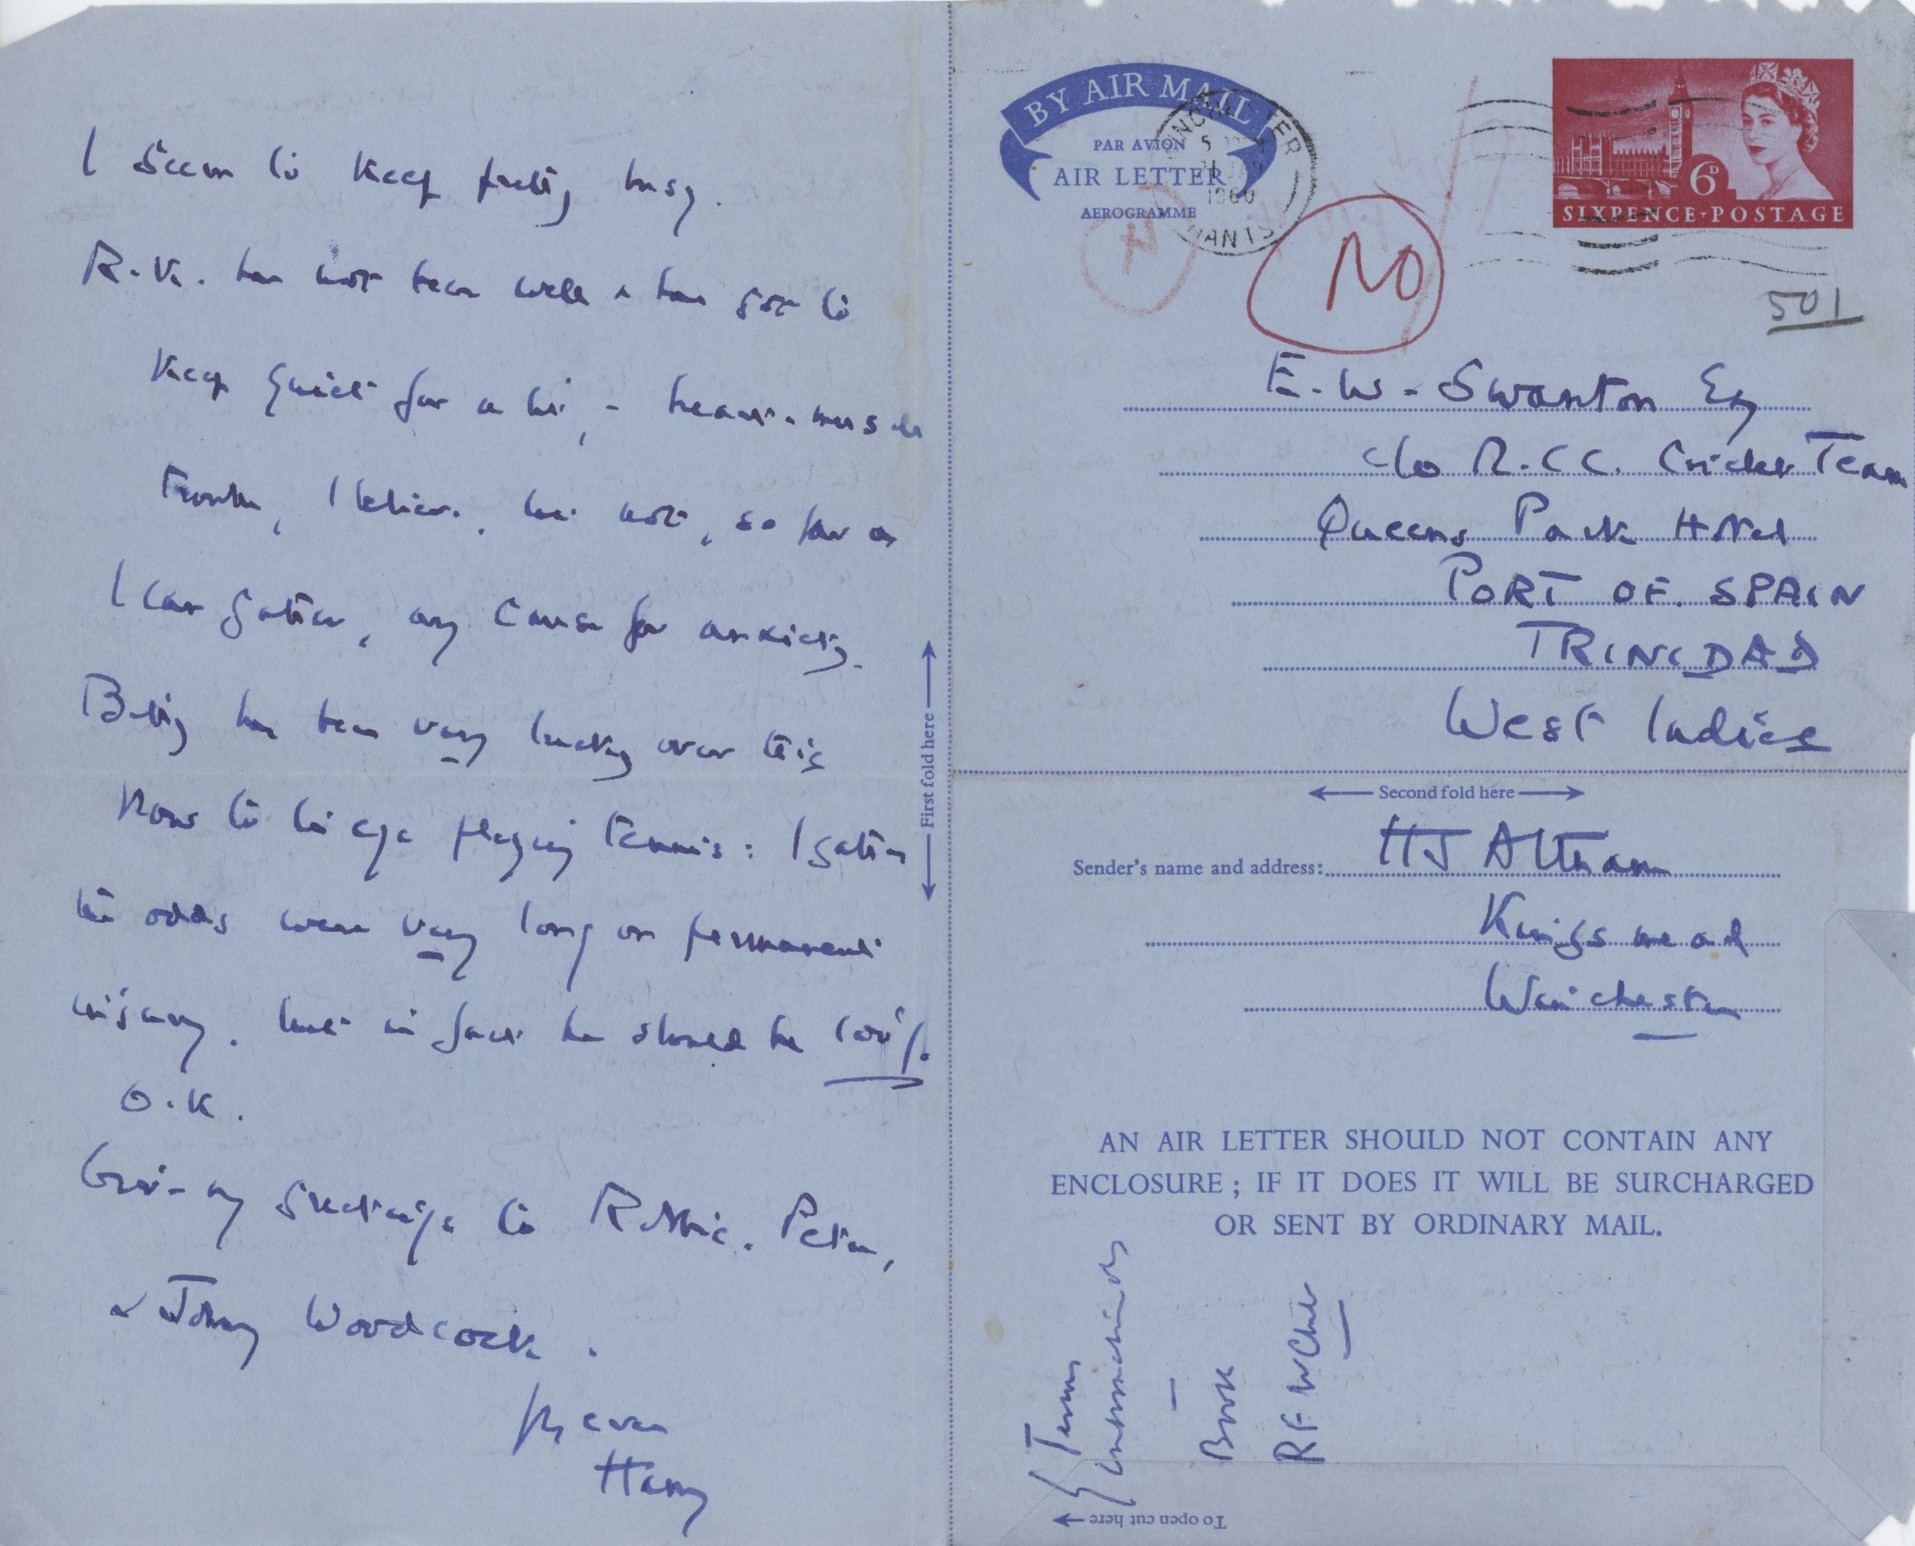 I seem to keep pretty busy.
R.V. has not been well & has got to
keep quiet for a bit, - heart-muscle
trouble, I believe, but not, so far as
I can gather, any cause for anxiety.
Betty has been very lucky over this
blow to his eye playing tennis: I gather
the odds were very long on permanent
injury, but in fact he should be 100%
O.K.
Give my greetings to Robbie, Peter,
& Johnny Woodcock.
Yrs ever
Harry
BY AIR MAIL
PAR AVION
AIR LETTER
AEROGRAMME
1960
HANTS
6D
SIXPENCE POSTAGE
NO
4
501
E.W. Swanton Esq
c/o M.C.C. Cricket Team
Queens Park Hotel
PORT OF SPAIN
TRINIDAD
West Indies
First fold here
Second fold here
Sender's name and address: HS Altham
Kingsmead
Winchester
AN AIR LETTER SHOULD NOT CONTAIN ANY
ENCLOSURE; IF IT DOES IT WILL BE SURCHARGED
OR SENT BY ORDINARY MAIL.
Book
To open cut here